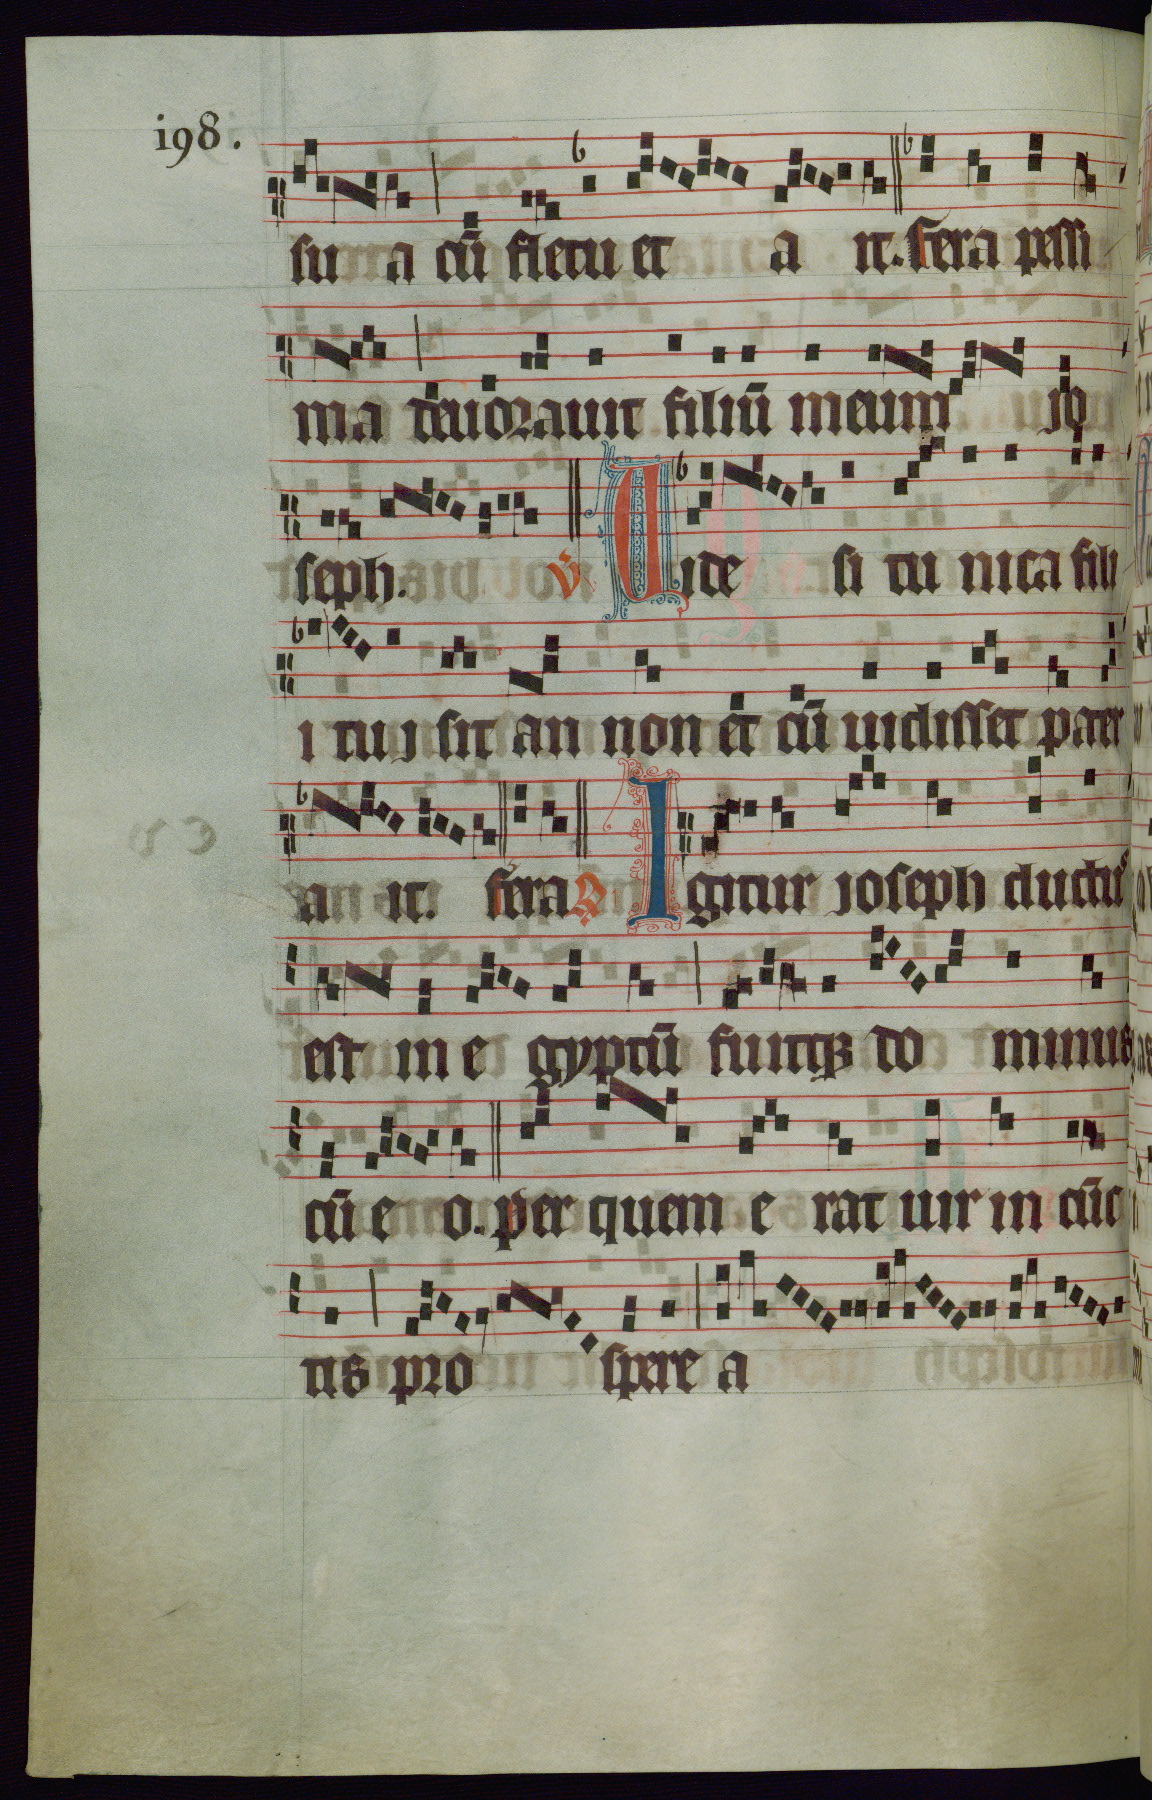 198.
su a cū fletu et a it. fera pessi
ma deuorauit filiū meum jo
seph. v̄ Uide si tu nica fili
i tuj sit an non et cū uidisset pater
a it. fera Igitur joseph ductus
est in e gyptū fuitqz do minus
cū e o. per quem e rat uir in cūc
tis pro spere a